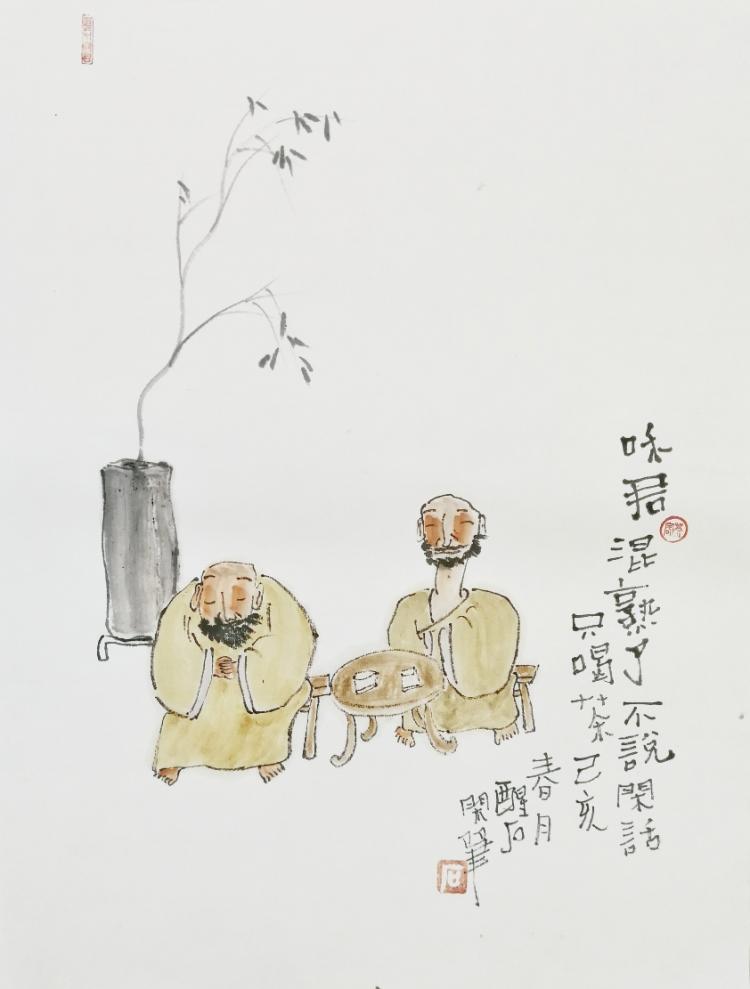 咊君混熟了不說閑話
只喝茶己亥
春月
醒石
閑筆
石